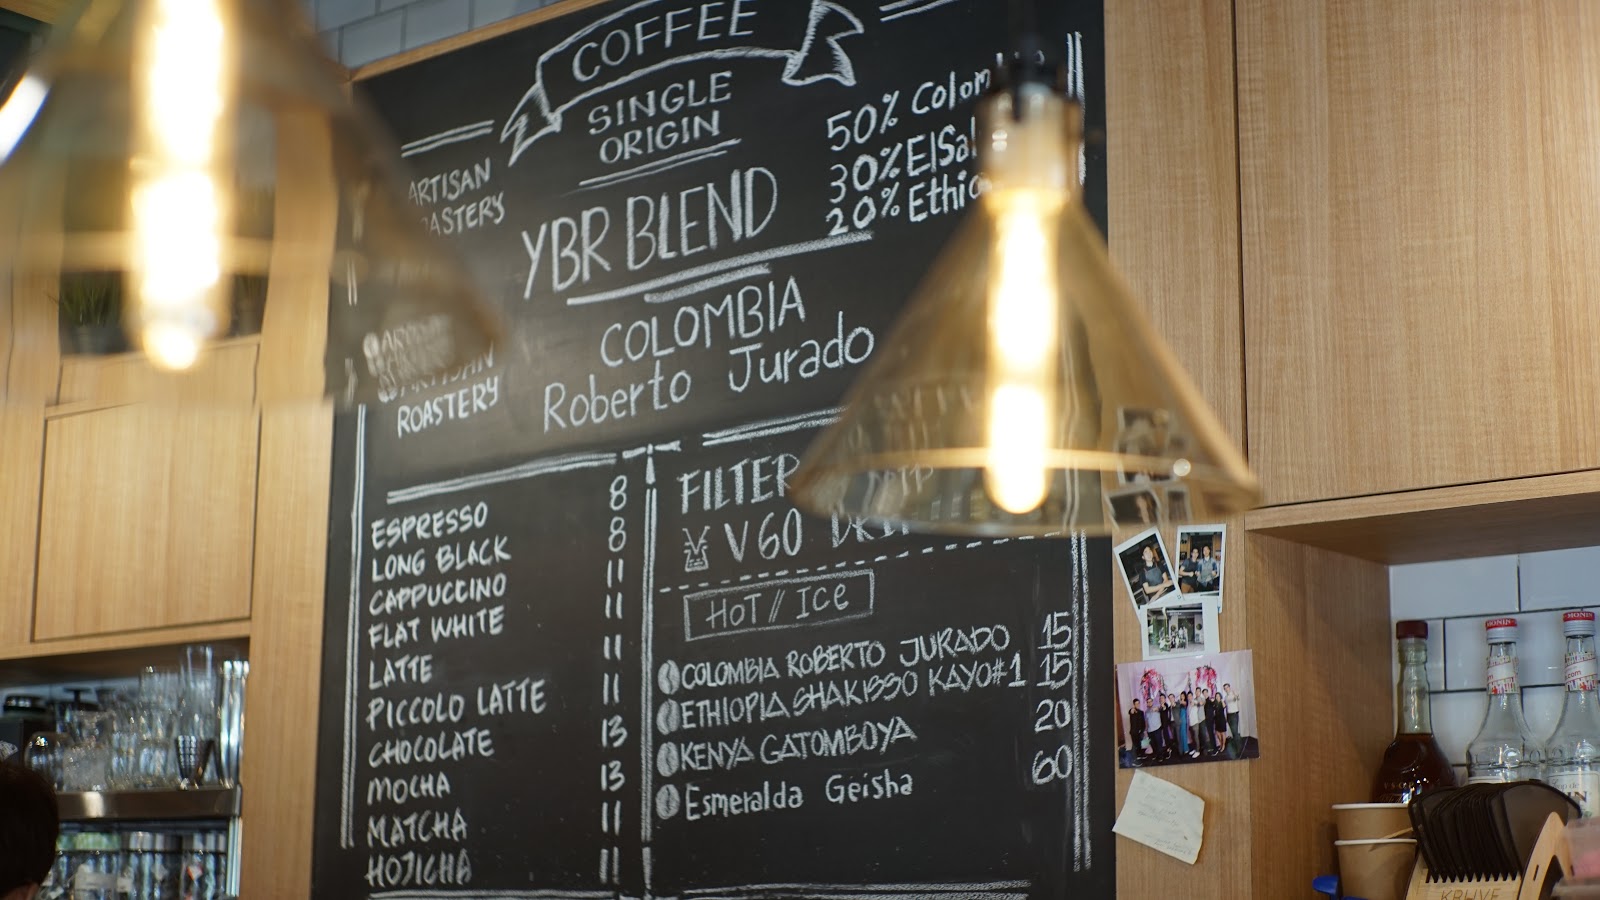 COFFEE
SINGLE
ORIGIN
ARTISAN
YBR BLEND
50% Colom
30% ElSal
20% Ethio
COLOMBIA
Roberto Jurado
ARTISAN
ROASTERY
ESPRESSO 8
LONG BLACK 8
CAPPUCCINO 11
FLAT WHITE 11
LATTE 11
PICCOLO LATTE 11
CHOCOLATE 13
MOCHA 13
MATCHA 11
HOJICHA 11
FILTER DRIP
V60 DRIP
HOT // ICE
COLOMBIA ROBERTO JURADO 15
ETHIOPIA SHAKISSO KAYO#1 15
KENYA GATOMBOYA 20
Esmeralda Geisha 60
MONIN
MONIN
KRUVE